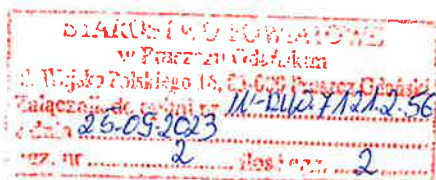 STAROSTWO POWIATOWE
w Pruszczu Gdańskim
ul. Wojska Polskiego 16, 83-000 Pruszcz Gdański
Załącznik do
z dnia 25.09.2023
egz. nr 2 ilość egz. 2